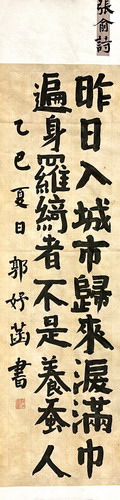 張俞詩
昨日入城市歸來淚滿巾
遍身羅綺者不是養蚕人
乙巳夏日郭妤菡書